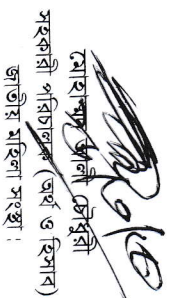 মোহাম্মদ আলী চৌধুরী
সহকারী পরিচালক (অর্থ ও হিসাব)
জাতীয় মহিলা সংস্থা :